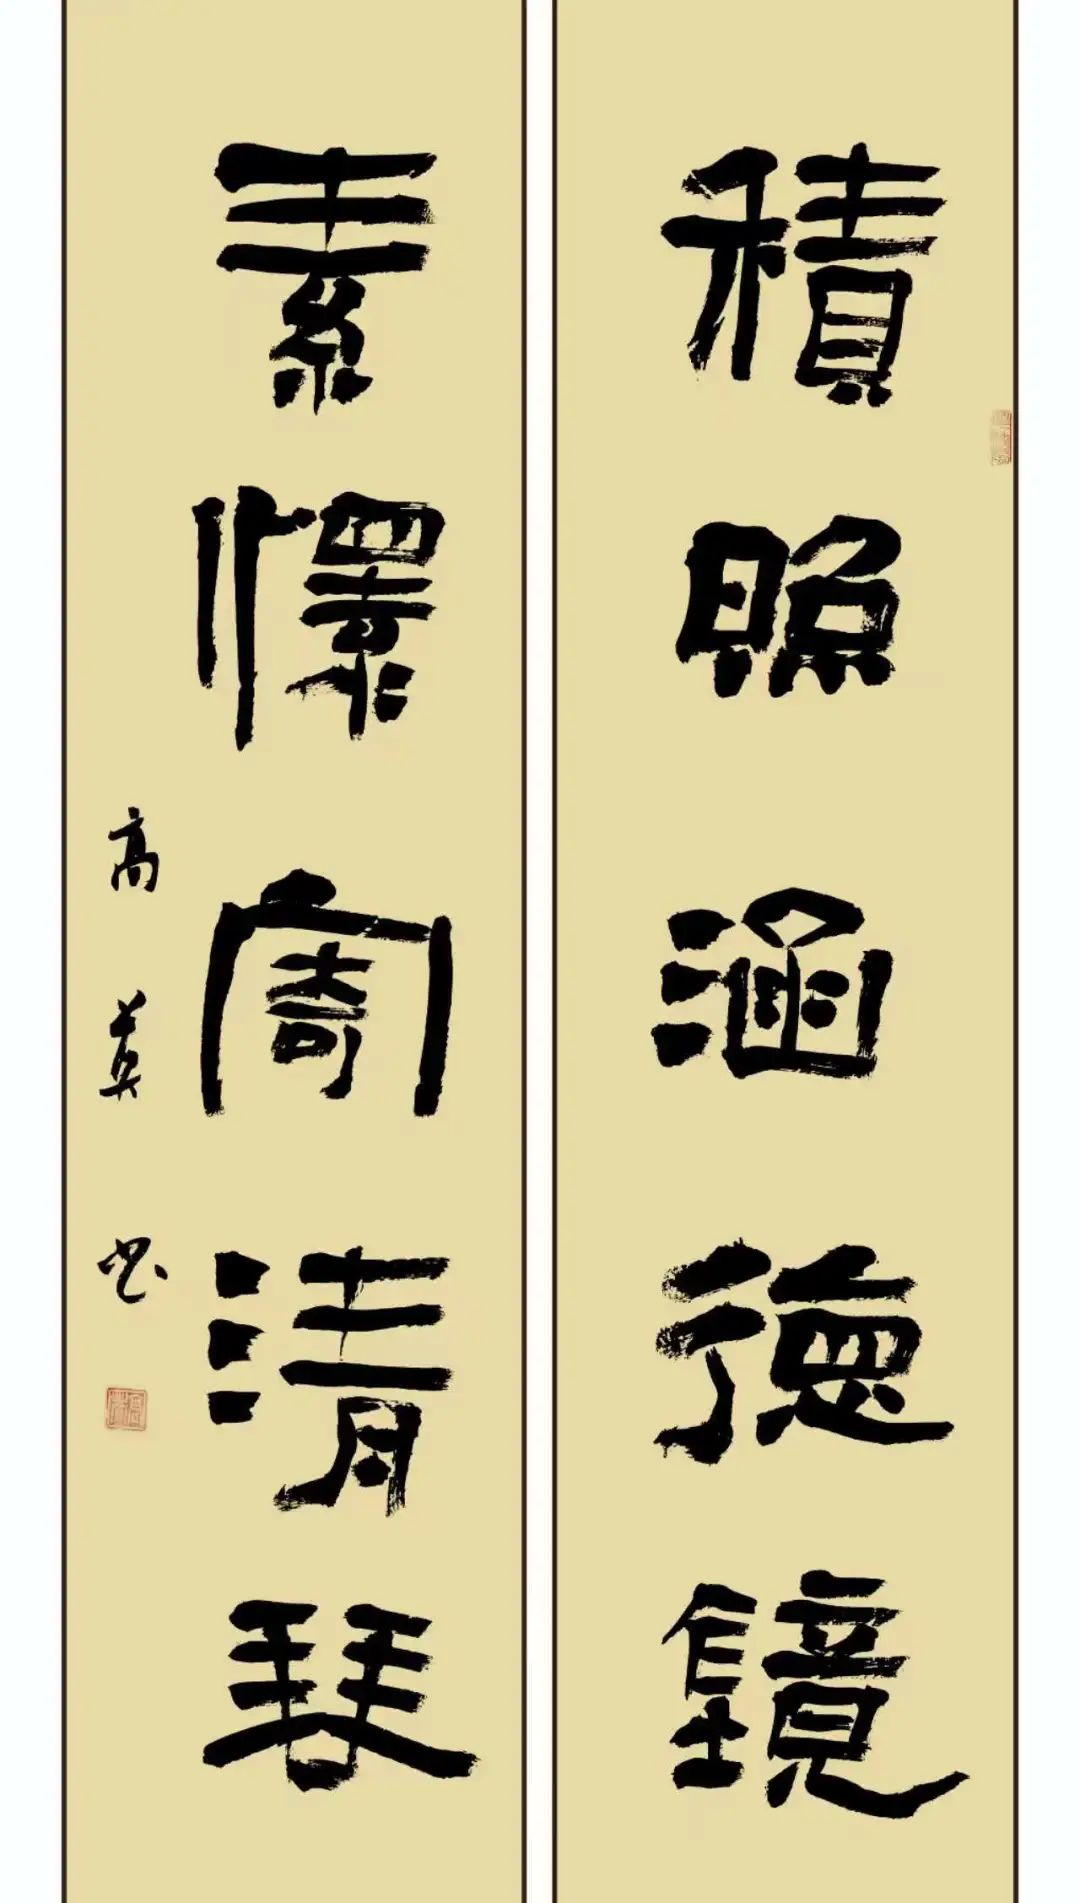 積照涵德鏡
素懷寄清琴
高莫书